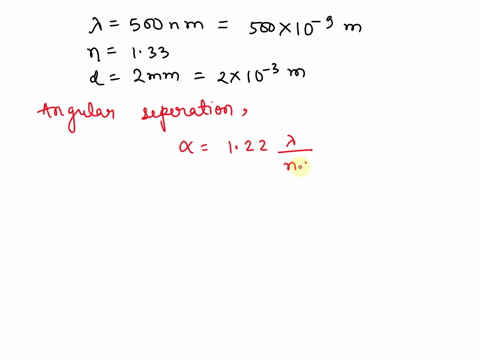 λ = 500 nm = 500 × 10⁻⁹ m
η = 1.33
d = 2mm = 2 × 10⁻³ m
Angular seperation,
α = 1.22 λ/n.